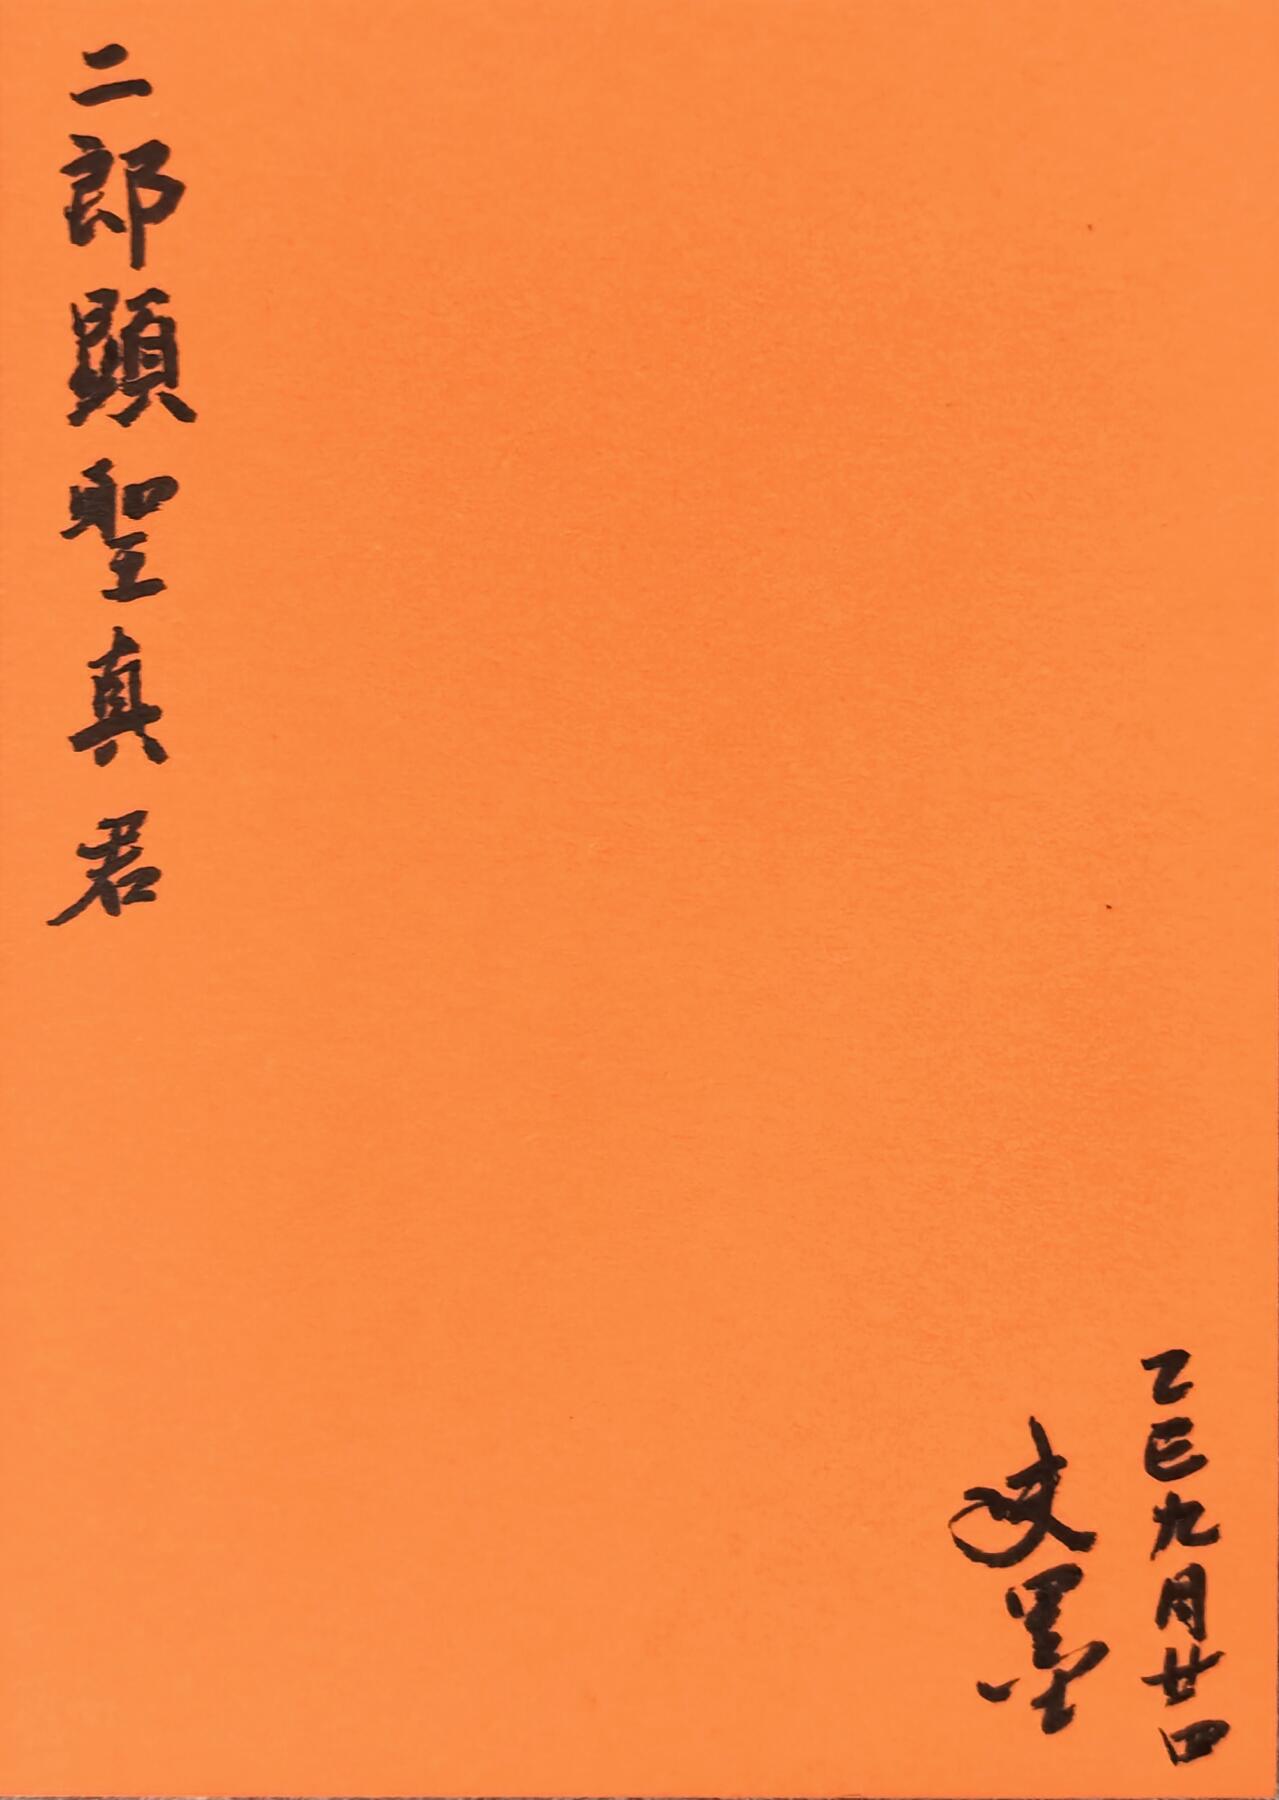 二郎顕聖真君
乙巳九月廿四
墨